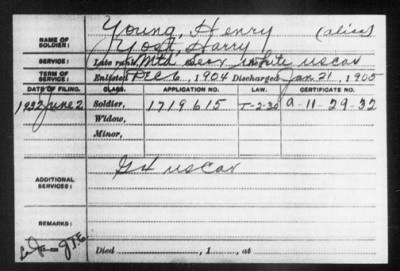 Young, Henry (alias)
NAME OF SOLDIER: Yost, Harry
SERVICE: Late rank, Mtd Serv White USCav
TERM OF SERVICE: Enlisted Dec 6, 1904 Discharged Jan. 21, 1905
DATE OF FILING. CLASS. APPLICATION NO. LAW. CERTIFICATE NO.
1932 June 2 Soldier, 1719615 T-2-30 A-11-29-32
Widow,
Minor,
ADDITIONAL SERVICES: USCav
REMARKS:
Died , 1 , at